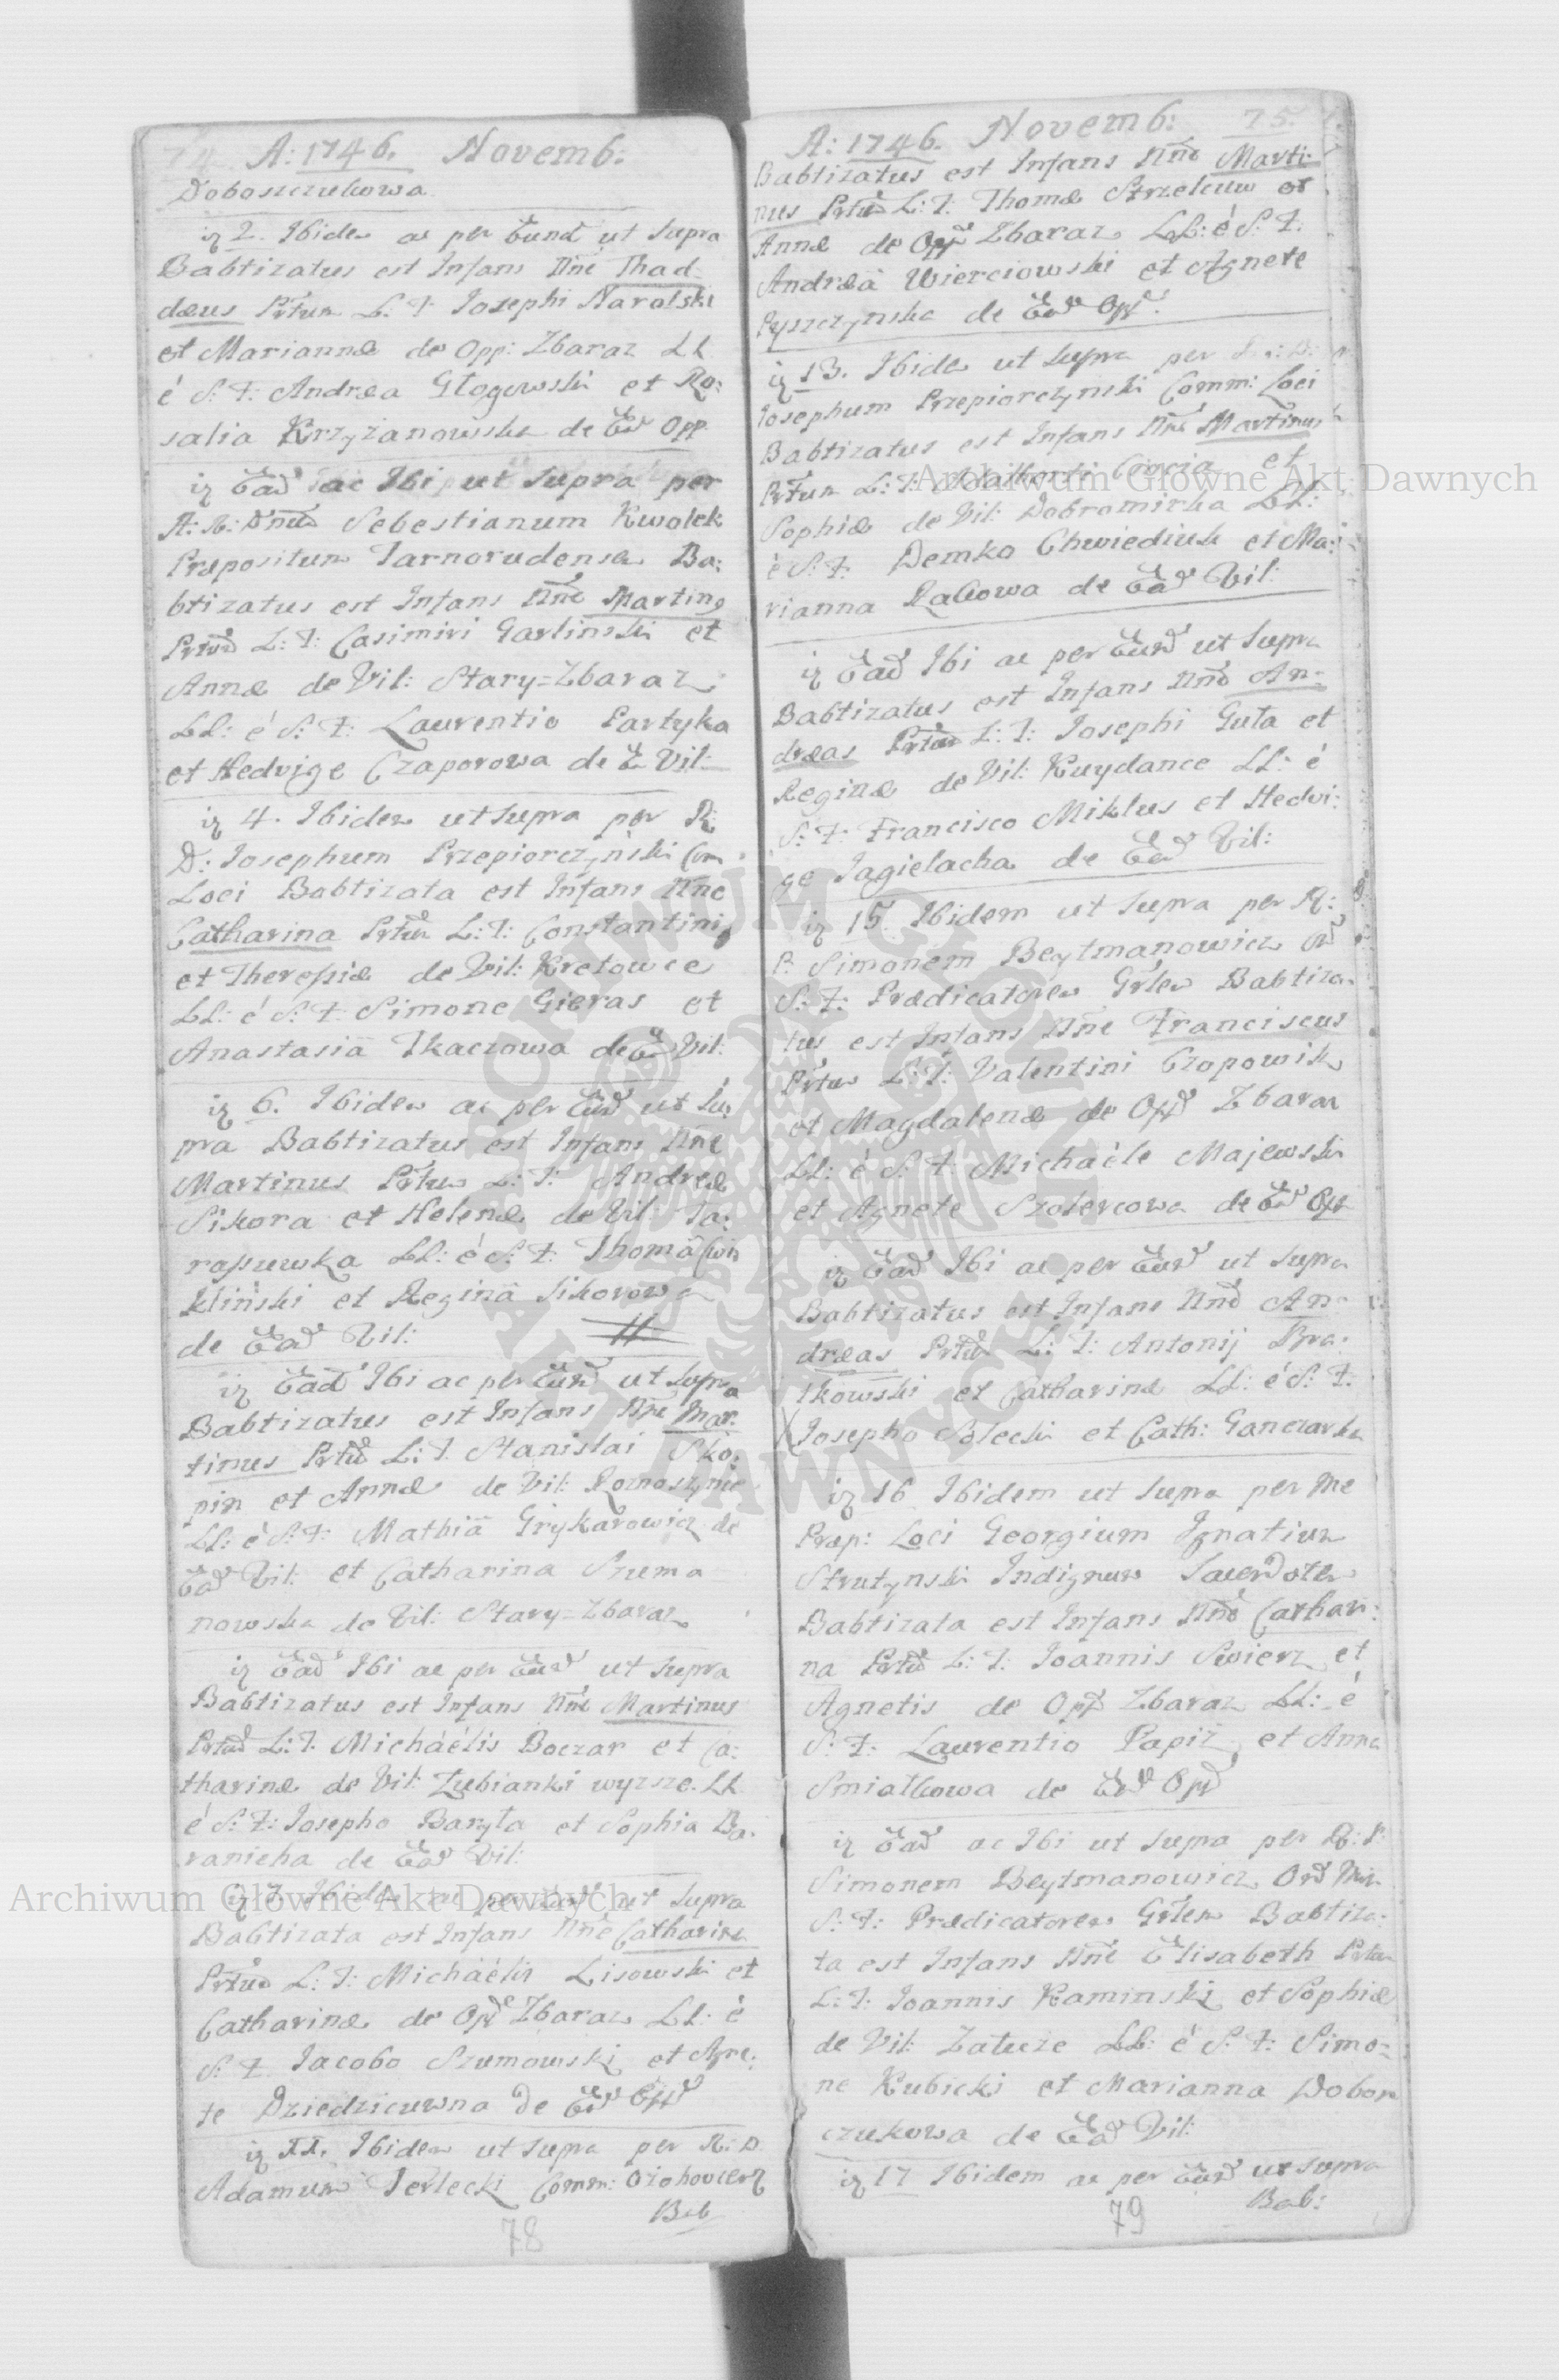 74 A: 1746. Novemb:
Doboszczukowa.
iz 2. Ibidem ac per Eund ut supra
Babtizatus est Infans Nne Thad-
dæus Prtum L: T: Josephi Narolski
et Mariannæ de Opp: Zbaraz LL
é S: F: Andræa Głogowski et Ro:
salia Krzyzanowska de Ead Opp.
iz Ead ac Ibi ut supra per
A: R: Dnum Sebestianum Kwolek
Præpositum Tarnorudensem Ba:
btizatus est Infans Nne Martinq
Prtum L: T: Casimiri Garlinski et
Annæ de Vil: Stary=Zbaraz
LL: é S: F: Laurentio Partyka
et Hedvige Czaporowa de E Vil:
iz 4. Ibidem ut supra per R:
D: Josephum Przepiorczyński Com
Loci Babtizata est Infans Nne
Catharina Prtum L: T: Constantini
et Theressiæ de Vil: Kretowce
LL: é S: F: Simone Gieras et
Anastasiâ Tkaczowa de E Vil:
iz 6. Ibidem ac per Eund ut su
pra Babtizatus est Infans Nne
Martinus Prtum L: T: Andreæ
Sikora et Helenæ de Vil: Ta:
rassuwka LL: é S: F: Thomâ Cwi
kliński et Reginâ Sikorowa
de Ead Vil:
iz Ead Ibi ac per Eund ut supra
Babtizatus est Infans Nne Mar:
tinus Prtum L: T: Stanislai Sko:
pin et Annæ de Vil: Roznoszynce
LL: é S: F: Mathiâ Grykarowicz de
Ead Vil: et Catharina Szuma
nowska de Vil: Stary=Zbaraz
iz Ead Ibi ac per Eund ut supra
Babtizatus est Infans Nne Martinus
Prtum L: T: Michäélis Boczar et Ca:
tharinæ de Vil: Zubianki wyzsze. LL
é S: F: Josepho Baryła et Sophia Ba:
ranicha de Ead Vil:
iz 7 Ibidem ac per Eund ut supra
Babtizata est Infans Nne Catharina
Prtum L: T: Michäélis Lisowski et
Catharinæ de Opp Zbaraz LL: é
S: F. Jacobo Szumowski et Agne:
te Dziedzicuwna de Ead Opp
iz XI. Ibidem ut supra per R: D.
Adamum Terlecki Comm: Ozohovcien
Bab
78
A: 1746. Novemb: 75.
Babtizatus est Infans Nne Marti:
nus Prtum L: T: Thomæ Strzelcuw et
Annæ de Opp Zbaraz LL: é S: F:
Andræâ Wierciowski et Agnete
Pyszczynska de Ead Opp.
iz 13. Ibidem ut supra per
Josephum Przepiorczynski Comm: Loci
Babtizatus est Infans Nne Martinus
Prtum L: T: Adalberti et
Sophiæ de Vil: Dobromirka LL:
é S: F: Demko Chwiediuk et Ma:
rianna Zakowa de Ead Vil:
iz Ead Ibi ac per Eund ut supra
Babtizatus est Infans Nne An:
dræas Prtum L: T: Josephi Guła et
Reginæ de Vil: Kuydance LL: é
S: F: Francisco Miklus et Hedvi:
ge Jagielacha de Ead Vil:
iz 15. Ibidem ut supra per R:
P: Simonem Beytmanowicz Ord
S: F: Prædicatorem Grlem Babtiza-
tus est Infans Nne Franciscus
Prtum L: T: Valentini Czopowik
et Magdalenæ de Opp Zbaraz
LL: é S: F: Michäéle Majewski
et Agnete Szolercowa de Ead Opp
iz Ead Ibi ac per Eund ut supra
Babtizatus est Infans Nne An-
dræas Prtum L: T: Antonij Bra:
tkowski et Catharinæ LL: é S: F.
Josepho Solecki et Cath: Ganczarka
iz 16 Ibidem ut supra per me
Præp: Loci Georgium Ignatium
Strutynski Indignum Sacerdotem
Babtizata est Infans Nne Cathari:
na Prtum L: T: Joannis Swierz et
Agnetis de Opp Zbaraz LL: é
S: F: Laurentio Papiż et Anna
Smiałkowa de Ead Opp
iz Ead ac Ibi ut supra per R: P:
Simonem Beytmanowicz Ord Min
S: F: Prædicatorem Grlem Babtiza:
ta est Infans Nne Elisabeth Prtum
L: T: Joannis Kaminski et Sophiæ
de Vil: Załuże LL: é S: F: Simo-
ne Kubicki et Marianna Dobosz
czukowa de Ead Vil:
iz 17 Ibidem ac per Eund ut supra
Bab:
79
Archiwum Główne Akt Dawnych
Archiwum Główne Akt Dawnych
ARCHIWUM GŁÓWNE AKT DAWNYCH